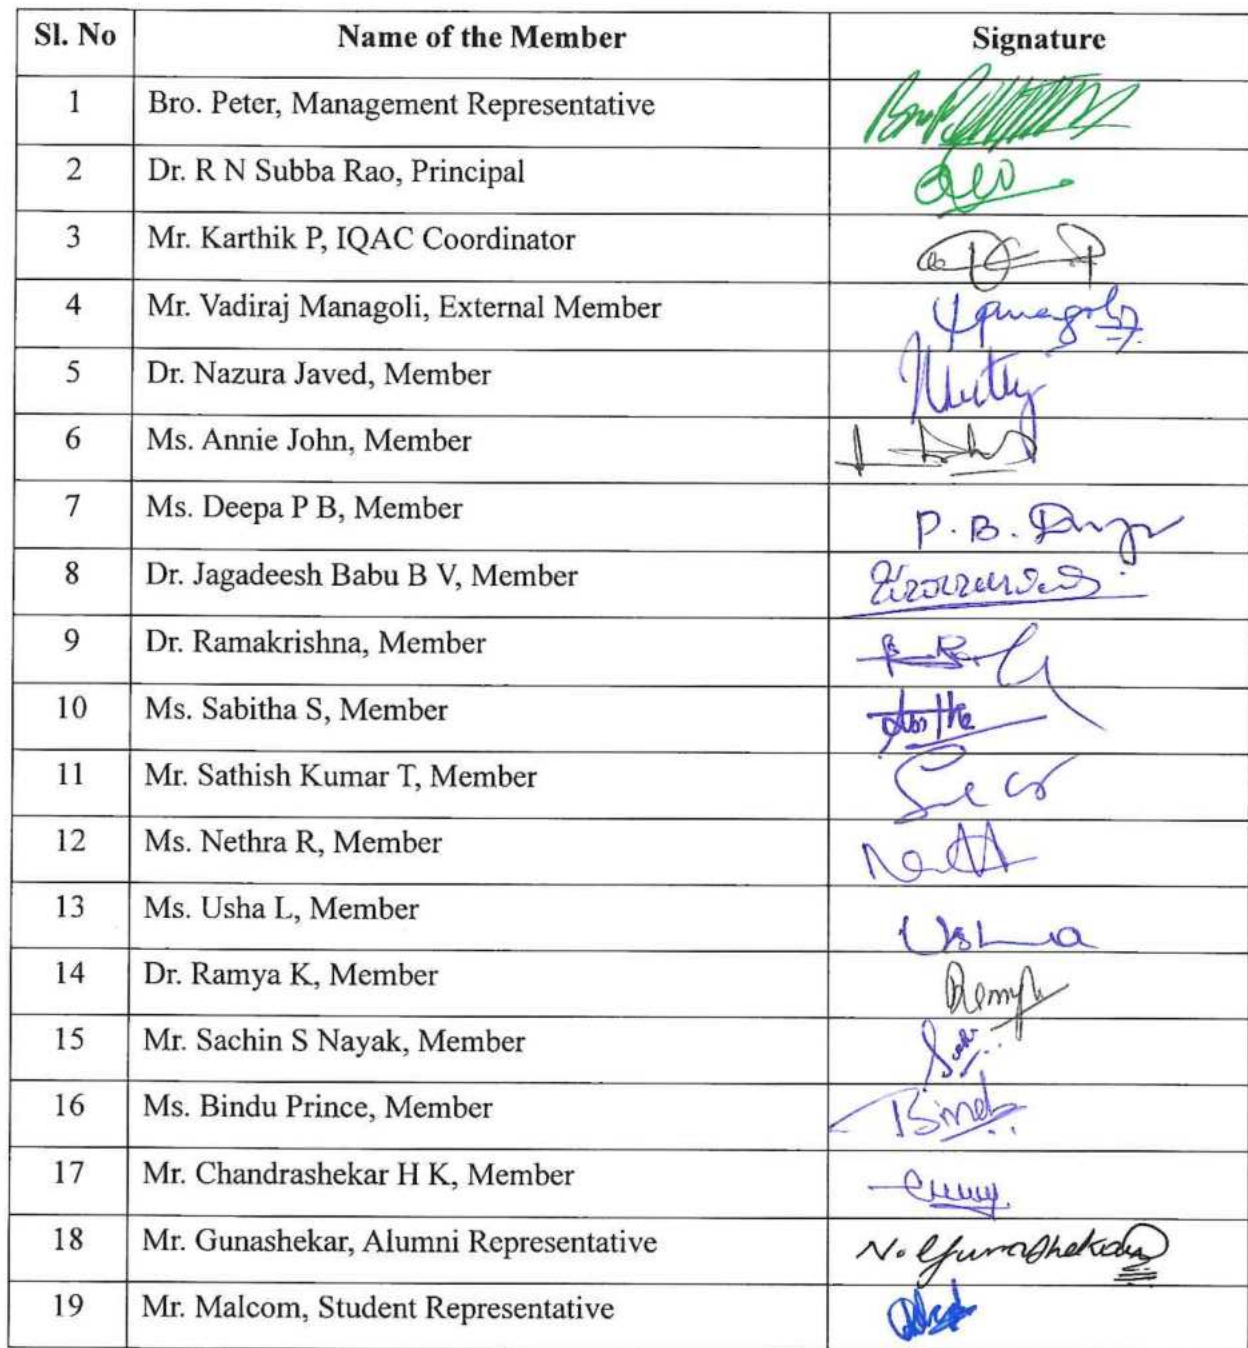 Sl. No Name of the Member Signature
1 Bro. Peter, Management Representative
2 Dr. R N Subba Rao, Principal
3 Mr. Karthik P, IQAC Coordinator
4 Mr. Vadiraj Managoli, External Member
5 Dr. Nazura Javed, Member
6 Ms. Annie John, Member
7 Ms. Deepa P B, Member P. B.
8 Dr. Jagadeesh Babu B V, Member
9 Dr. Ramakrishna, Member
10 Ms. Sabitha S, Member
11 Mr. Sathish Kumar T, Member
12 Ms. Nethra R, Member
13 Ms. Usha L, Member Usha
14 Dr. Ramya K, Member
15 Mr. Sachin S Nayak, Member
16 Ms. Bindu Prince, Member
17 Mr. Chandrashekar H K, Member
18 Mr. Gunashekar, Alumni Representative N. Gunashekar
19 Mr. Malcom, Student Representative